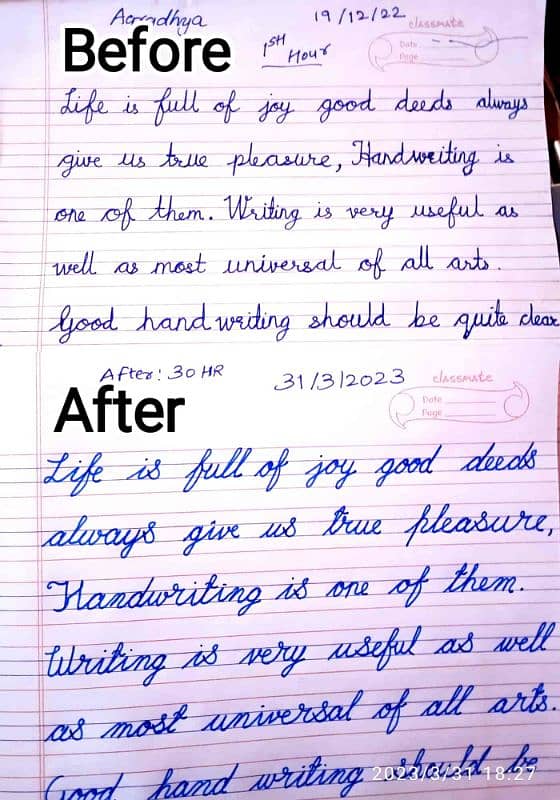 Aaradhya 19/12/22 classmate
Before 1ST Hour Date
Page
Life is full of joy good deeds always
give us true pleasure, Handwriting is
one of them. Writing is very useful as
well as most universal of all arts.
Good hand writing should be quite clear
After: 30 HR 31/3/2023 classmate
After Date
Page
Life is full of joy good deeds
always give us true pleasure,
Handwriting is one of them.
Writing is very useful as well
as most universal of all arts.
Good hand writing should be
2023/3/31 18:27